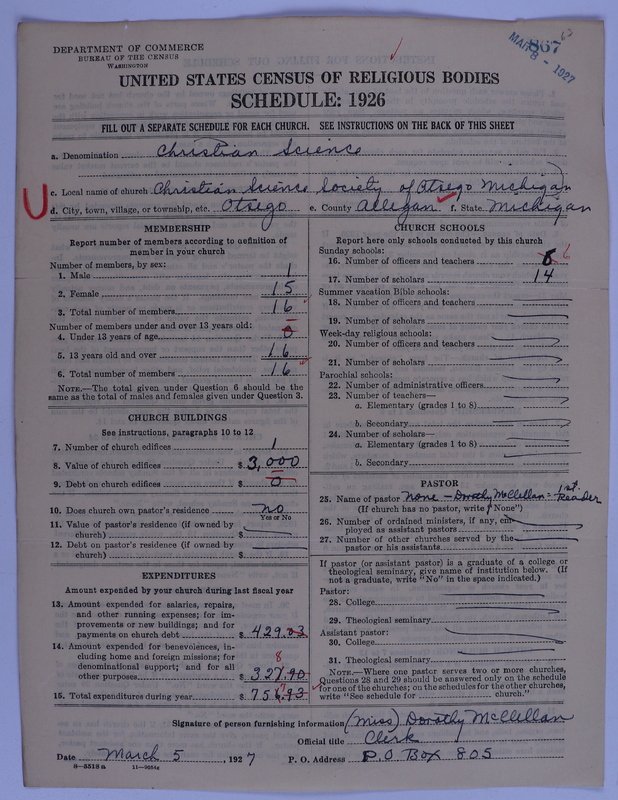 DEPARTMENT OF COMMERCE
BUREAU OF THE CENSUS
WASHINGTON
867
MAR 8 - 1927
UNITED STATES CENSUS OF RELIGIOUS BODIES
SCHEDULE: 1926
FILL OUT A SEPARATE SCHEDULE FOR EACH CHURCH. SEE INSTRUCTIONS ON THE BACK OF THIS SHEET
a. Denomination Christian Science
c. Local name of church Christian Science Society of Otsego Michigan
d. City, town, village, or township, etc. Otsego e. County Allegan f. State Michigan
MEMBERSHIP
Report number of members according to definition of
member in your church
Number of members, by sex:
1. Male 1
2. Female 15
3. Total number of members 16
Number of members under and over 13 years old:
4. Under 13 years of age 0
5. 13 years old and over 16
6. Total number of members 16
NOTE.—The total given under Question 6 should be
same as the total of males and females given under Question 3.
CHURCH BUILDINGS
See instructions, paragraphs 10 to 12
7. Number of church edifices 1
8. Value of church edifices $ 3,000
9. Debt on church edifices $ 0
10. Does church own pastor's residence no
Yes or No
11. Value of pastor's residence (if owned by
church) $
12. Debt on pastor's residence (if owned by
church) $
EXPENDITURES
Amount expended by your church during last fiscal year
13. Amount expended for salaries, repairs,
and other running expenses; for im-
provements or new buildings; and for
payments on church debt $ 429.03
14. Amount expended for benevolences, in-
cluding home and foreign missions; for
denominational support; and for all
8
other purposes $ 327.90
15. Total expenditures during year $ 756.93
CHURCH SCHOOLS
Report here only schools conducted by this church
Sunday schools:
16. Number of officers and teachers 6
17. Number of scholars 14
Summer vacation Bible schools:
18. Number of officers and teachers
19. Number of scholars
Week-day religious schools:
20. Number of officers and teachers
21. Number of scholars
Parochial schools:
22. Number of administrative officers
23. Number of teachers—
a. Elementary (grades 1 to 8)
b. Secondary
24. Number of scholars—
a. Elementary (grades 1 to 8)
b. Secondary
PASTOR
25. Name of pastor None - Dorothy McClellan = 1st Reader
(If church has no pastor, write "None")
26. Number of ordained ministers, if any, em-
ployed as assistant pastors
27. Number of other churches served by the
pastor or his assistants
If pastor (or assistant pastor) is a graduate of a college or
theological seminary, give name of institution below. (If
not a graduate, write "No" in the space indicated.)
Pastor:
28. College
29. Theological seminary
Assistant pastor:
30. College
31. Theological seminary
NOTE.—Where one pastor serves two or more churches,
Questions 28 and 29 should be answered only on the schedule
for one of the churches; on the schedules for the other churches,
write "See schedule for church."
Signature of person furnishing information (Miss) Dorothy McClellan
Official title Clerk
Date March 5, 1927 P. O. Address P.O Box 805
8-5518a 11-9864